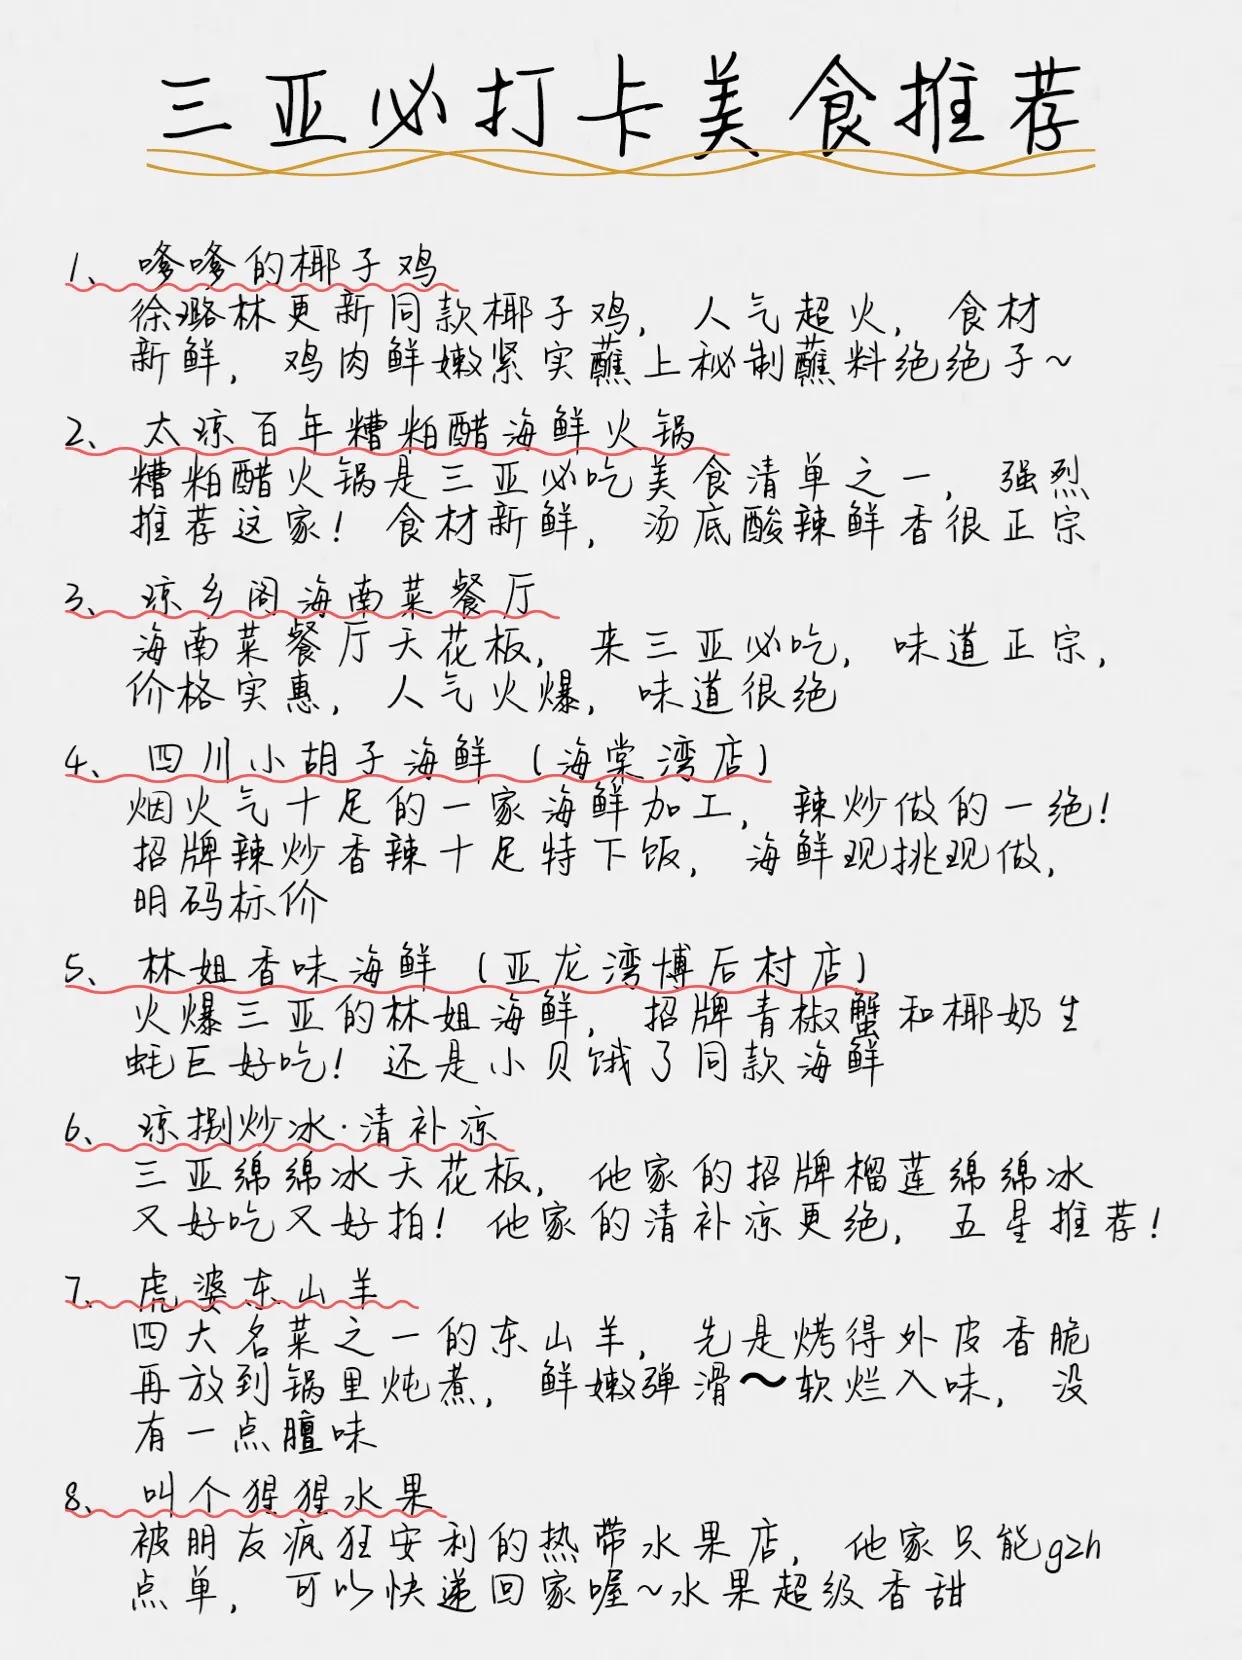 三亚必打卡美食推荐
1、嗲嗲的椰子鸡
徐璐林更新同款椰子鸡，人气超火，食材
新鲜，鸡肉鲜嫩紧实蘸上秘制蘸料绝绝子~
2、太凉百年糟粕醋海鲜火锅
糟粕醋火锅是三亚必吃美食清单之一，强烈
推荐这家！食材新鲜，汤底酸辣鲜香很正宗
3、琼乡阁海南菜餐厅
海南菜餐厅天花板，来三亚必吃，味道正宗，
价格实惠，人气火爆，味道很绝
4、四川小胡子海鲜（海棠湾店）
烟火气十足的一家海鲜加工，辣炒做的一绝！
招牌辣炒香辣十足特下饭，海鲜现挑现做，
明码标价
5、林姐香味海鲜（亚龙湾博后村店）
火爆三亚的林姐海鲜，招牌青椒蟹和椰奶生
蚝巨好吃！还是小贝饿了同款海鲜
6、琼捌炒冰·清补凉
三亚绵绵冰天花板，他家的招牌榴莲绵绵冰
又好吃又好拍！他家的清补凉更绝，五星推荐！
7、虎婆东山羊
四大名菜之一的东山羊，先是烤得外皮香脆
再放到锅里炖煮，鲜嫩弹滑～软烂入味，没
有一点膻味
8、叫个猩猩水果
被朋友疯狂安利的热带水果店，他家只能gzh
点单，可以快递回家喔~水果超级香甜